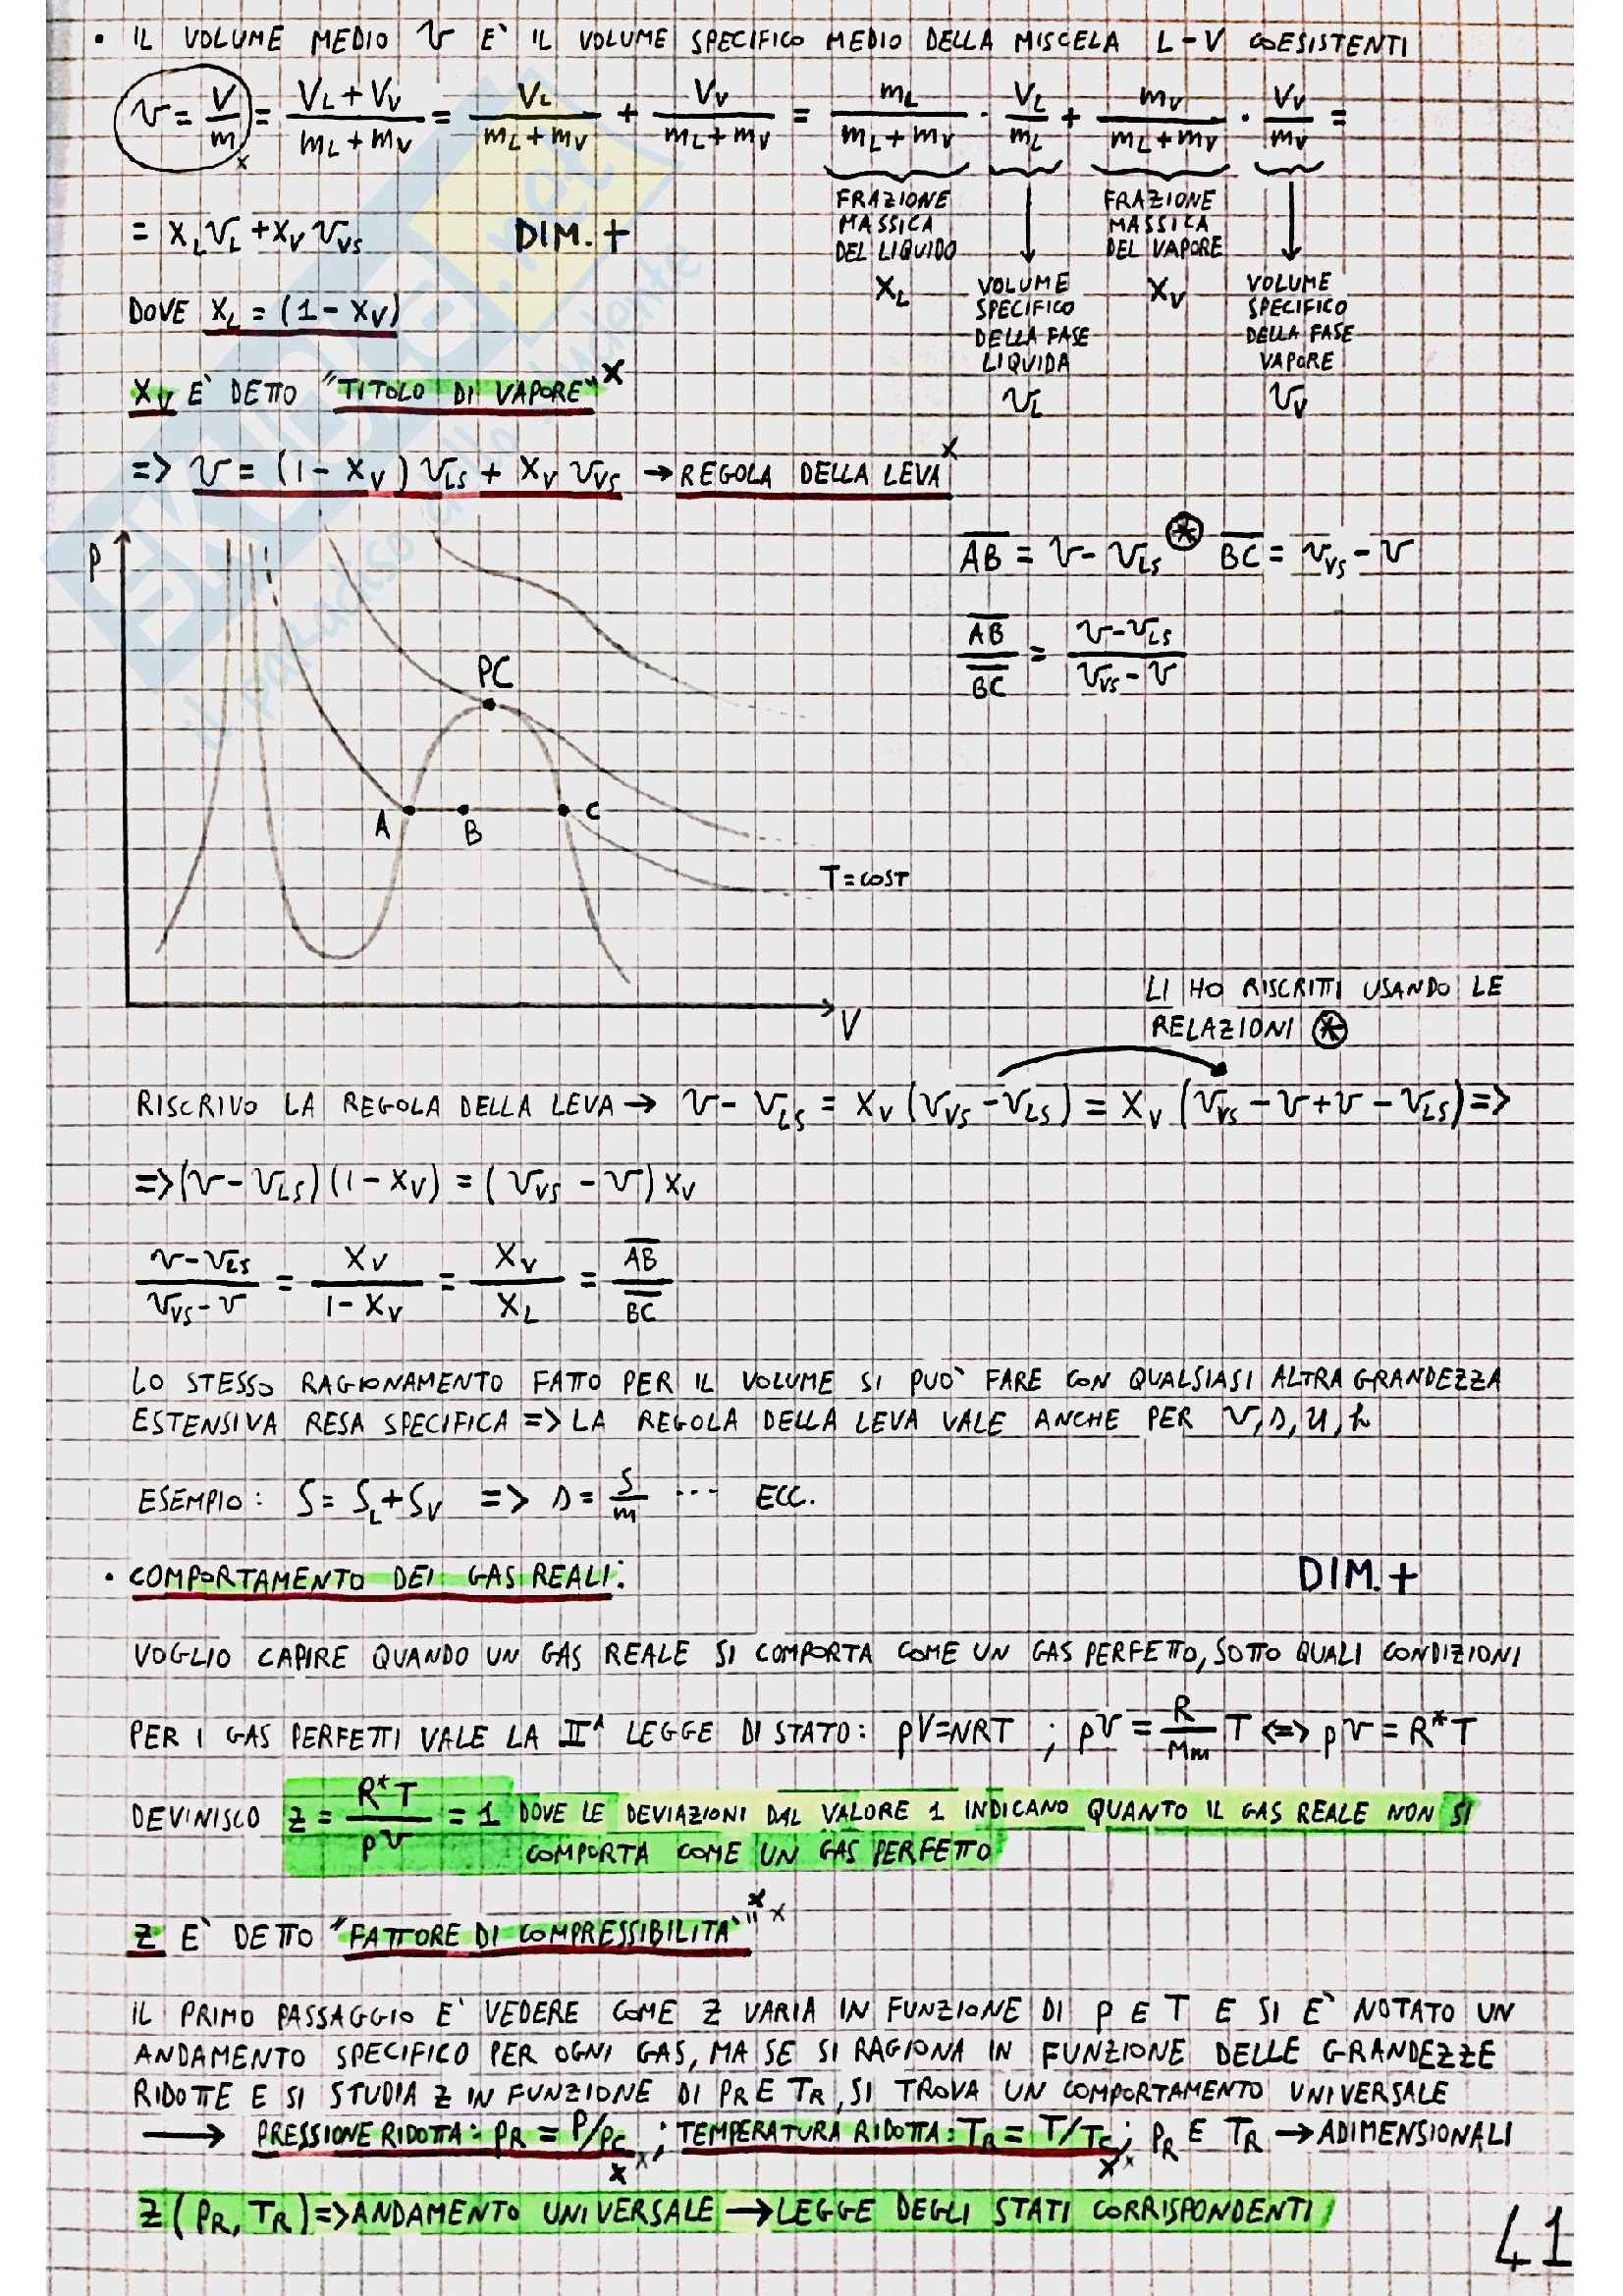 • IL VOLUME MEDIO v E` IL VOLUME SPECIFICO MEDIO DELLA MISCELA L-V COESISTENTI
v = V/m = (V_L + V_V)/(m_L + m_V) = V_L/(m_L + m_V) + V_V/(m_L + m_V) = m_L/(m_L + m_V) · V_L/m_L + m_V/(m_L + m_V) · V_V/m_V =
FRAZIONE MASSICA DEL LIQUIDO X_L
VOLUME SPECIFICO DELLA FASE LIQUIDA v_L
FRAZIONE MASSICA DEL VAPORE X_V
VOLUME SPECIFICO DELLA FASE VAPORE v_V
= X_L v_L + X_V v_VS DIM. +
DOVE X_L = (1 - X_V)
X_V E` DETTO "TITOLO DI VAPORE" x
=> v = (1 - X_V) v_LS + X_V v_VS → REGOLA DELLA LEVA x
P
AB = v - v_LS ⊛ BC = v_VS - v
AB/BC = (v - v_LS)/(v_VS - v)
PC
A B C
T = COST
V
LI HO RISCRITTI USANDO LE
RELAZIONI ⊛
RISCRIVO LA REGOLA DELLA LEVA → v - v_LS = X_V (v_VS - v_LS) = X_V (v_VS - v + v - v_LS) =>
=> (v - v_LS)(1 - X_V) = (v_VS - v) X_V
(v - v_LS)/(v_VS - v) = X_V/(1 - X_V) = X_V/X_L = AB/BC
LO STESSO RAGIONAMENTO FATTO PER IL VOLUME SI PUO` FARE CON QUALSIASI ALTRA GRANDEZZA
ESTENSIVA RESA SPECIFICA => LA REGOLA DELLA LEVA VALE ANCHE PER v, s, u, h
ESEMPIO: S = S_L + S_V => s = S/m ... ECC.
• COMPORTAMENTO DEI GAS REALI: DIM. +
VOGLIO CAPIRE QUANDO UN GAS REALE SI COMPORTA COME UN GAS PERFETTO, SOTTO QUALI CONDIZIONI
PER I GAS PERFETTI VALE LA IIª LEGGE DI STATO: pV = NRT ; pv = R/Mm T <=> pv = R*T
DEVINISCO z = R*T/pv = 1 DOVE LE DEVIAZIONI DAL VALORE 1 INDICANO QUANTO IL GAS REALE NON SI
COMPORTA COME UN GAS PERFETTO
Z E` DETTO "FATTORE DI COMPRESSIBILITA`" x x
IL PRIMO PASSAGGIO E` VEDERE COME Z VARIA IN FUNZIONE DI P E T E SI E` NOTATO UN
ANDAMENTO SPECIFICO PER OGNI GAS, MA SE SI RAGIONA IN FUNZIONE DELLE GRANDEZZE
RIDOTTE E SI STUDIA Z IN FUNZIONE DI PR E TR, SI TROVA UN COMPORTAMENTO UNIVERSALE
→ PRESSIONE RIDOTTA: PR = P/Pc ; TEMPERATURA RIDOTTA: TR = T/Tc ; PR E TR → ADIMENSIONALI
Z(PR, TR) => ANDAMENTO UNIVERSALE → LEGGE DEGLI STATI CORRISPONDENTI
41
SKUOLA.net
il paradiso dello studente